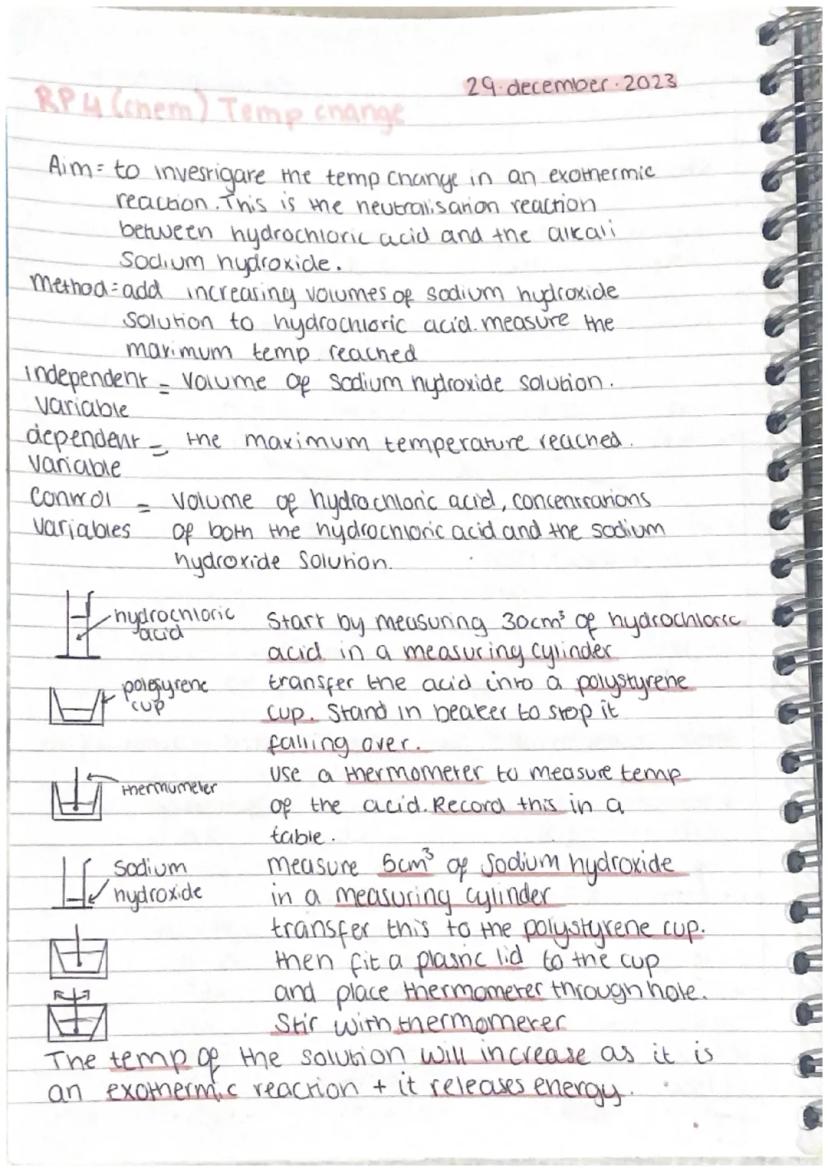 29.december.2023
RP4 (chem) Temp change
Aim= to investigate the temp change in an exothermic
reaction. This is the neutralisation reaction
between hydrochloric acid and the alkali
Sodium hydroxide.
method= add increasing volumes of sodium hydroxide
solution to hydrochloric acid. measure the
maximum temp reached
independent = volume of sodium hydroxide solution.
variable
dependent = the maximum temperature reached.
variable
control = volume of hydrochloric acid, concentrations
variables of both the hydrochloric acid and the sodium
hydroxide solution.
hydrochloric acid
Start by measuring 30cm³ of hydrochloric
acid in a measuring cylinder
polestyrene cup
transfer the acid into a polystyrene
cup. Stand in beaker to stop it
falling over.
thermometer
use a thermometer to measure temp
of the acid. Record this in a
table.
sodium hydroxide
measure 5cm³ of sodium hydroxide
in a measuring cylinder
transfer this to the polystyrene cup.
then fit a plastic lid to the cup
and place thermometer through hole.
Stir with thermometer
The temp of the solution will increase as it is
an exothermic reaction + it releases energy.